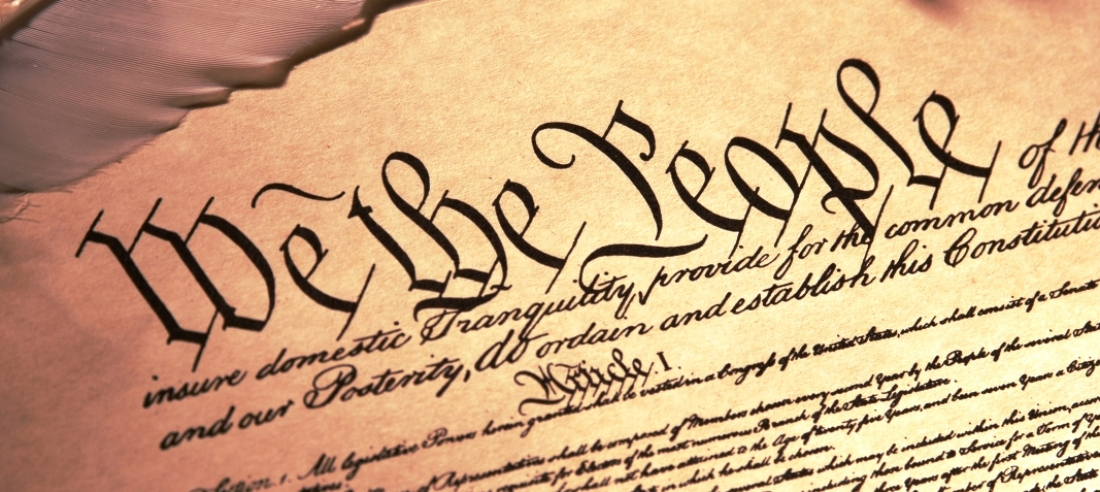 We the People of th
insure domestic Tranquility, provide for the common defen
and our Posterity, do ordain and establish this Constituti
Article I.
Section. 1. All legislative Powers herein granted shall be vested in a Congress of the United States, which shall consist of a Senate
of Representatives shall be composed of Members chosen every second Year by the People of the several Stat
requisite for Electors of the most numerous Branch of the State Legislature.
shall not have attained to the Age of twenty five Years, and been seven Years a Citize
State in which he shall be chosen.
several States which may be included within this Union, accor
including those bound to Service for a Term of Ye
Years after the first Meeting of the
Number of Representatives